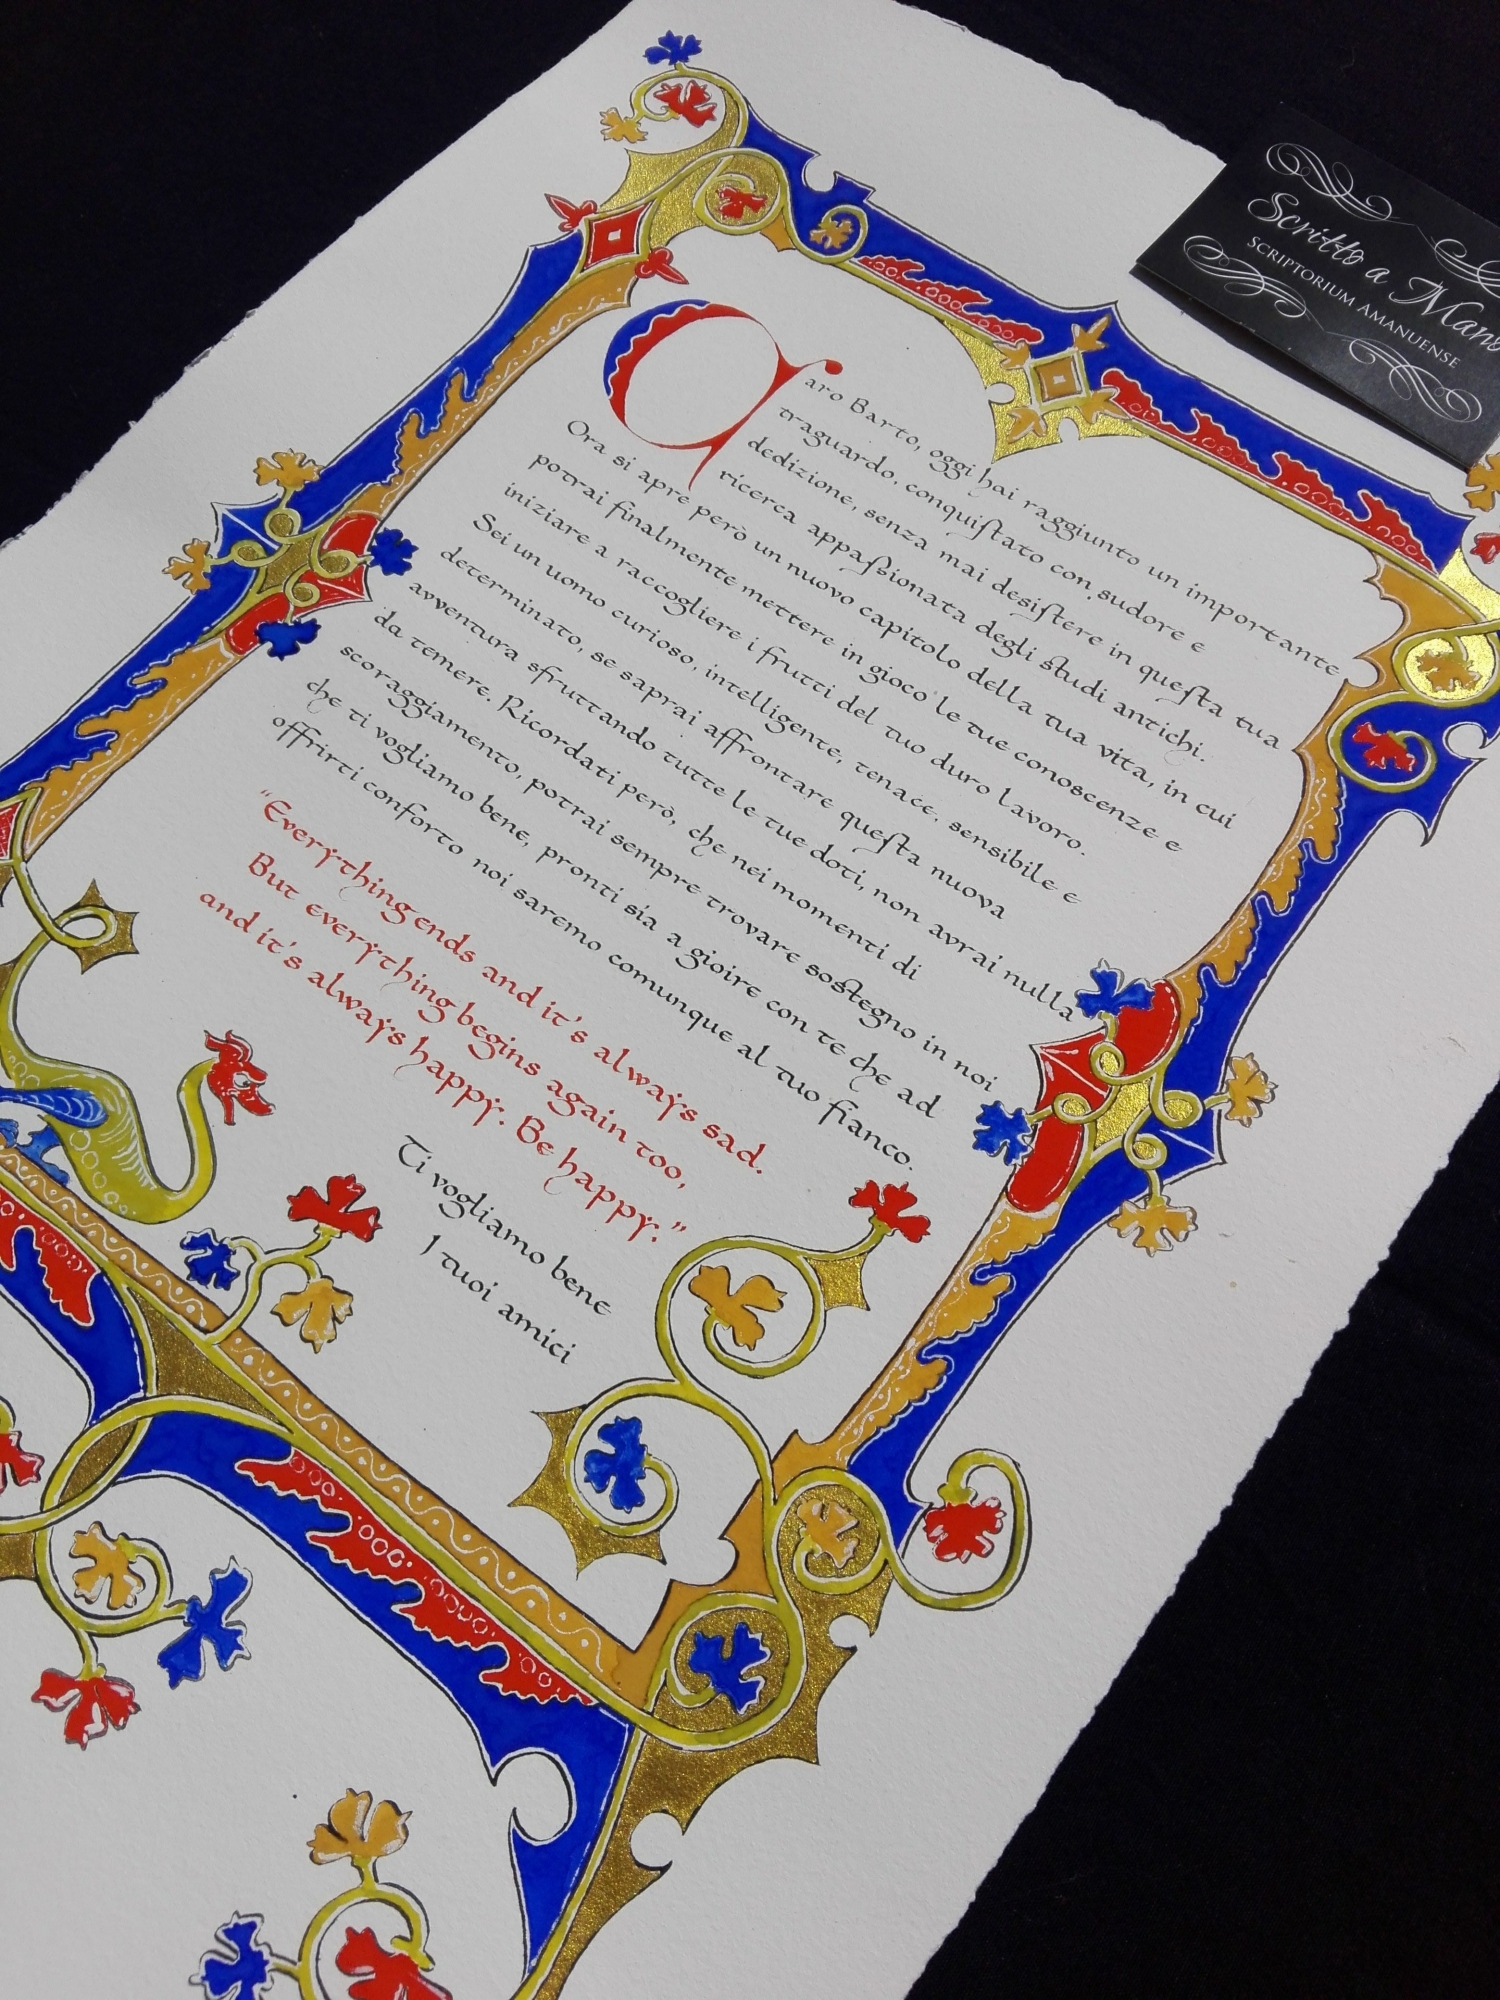 Caro Barto, oggi hai raggiunto un importante
traguardo, conquistato con sudore e
dedizione, senza mai desistere in questa tua
ricerca appassionata degli studi antichi.
Ora si apre però un nuovo capitolo della tua vita, in cui
potrai finalmente mettere in gioco le tue conoscenze e
iniziare a raccogliere i frutti del tuo duro lavoro.
Sei un uomo curioso, intelligente, tenace, sensibile e
determinato, se saprai affrontare questa nuova
avventura sfruttando tutte le tue doti, non avrai nulla
da temere. Ricordati però, che nei momenti di
scoraggiamento, potrai sempre trovare sostegno in noi
che ti vogliamo bene, pronti sia a gioire con te che ad
offrirti conforto noi saremo comunque al tuo fianco.
“Everything ends and it's always sad.
But everything begins again too,
and it's always happy. Be happy.”
Ti vogliamo bene
I tuoi amici
Scritto a Mano
SCRIPTORIUM AMANUENSE